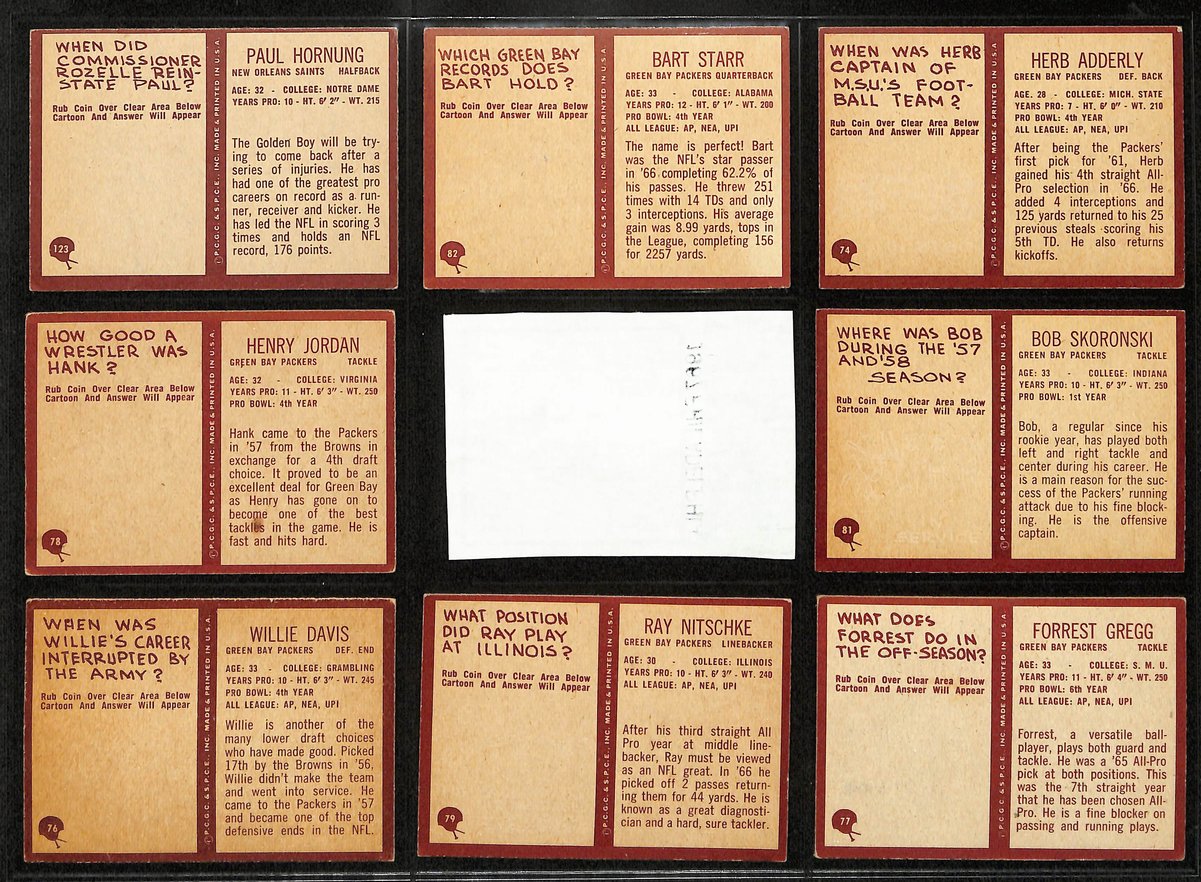 WHEN DID
COMMISSIONER
ROZELLE REIN-
STATE PAUL?
Rub Coin Over Clear Area Below
Cartoon And Answer Will Appear
123
© P.C.G.C. & S.P.C.E., INC. MADE & PRINTED IN U.S.A.
PAUL HORNUNG
NEW ORLEANS SAINTS HALFBACK
AGE: 32 - COLLEGE: NOTRE DAME
YEARS PRO: 10 - HT. 6' 2" - WT. 215
The Golden Boy will be try-
ing to come back after a
series of injuries. He has
had one of the greatest pro
careers on record as a run-
ner, receiver and kicker. He
has led the NFL in scoring 3
times and holds an NFL
record, 176 points.
WHICH GREEN BAY
RECORDS DOES
BART HOLD?
Rub Coin Over Clear Area Below
Cartoon And Answer Will Appear
82
© P.C.G.C. & S.P.C.E., INC. MADE & PRINTED IN U.S.A.
BART STARR
GREEN BAY PACKERS QUARTERBACK
AGE: 33 - COLLEGE: ALABAMA
YEARS PRO: 12 - HT. 6' 1" - WT. 200
PRO BOWL: 4th YEAR
ALL LEAGUE: AP, NEA, UPI
The name is perfect! Bart
was the NFL's star passer
in '66 completing 62.2% of
his passes. He threw 251
times with 14 TDs and only
3 interceptions. His average
gain was 8.99 yards, tops in
the League, completing 156
for 2257 yards.
WHEN WAS HERB
CAPTAIN OF
M.S.U.'S FOOT-
BALL TEAM?
Rub Coin Over Clear Area Below
Cartoon And Answer Will Appear
74
© P.C.G.C. & S.P.C.E., INC. MADE & PRINTED IN U.S.A.
HERB ADDERLY
GREEN BAY PACKERS DEF. BACK
AGE. 28 - COLLEGE: MICH. STATE
YEARS PRO: 7 - HT. 6' 0" - WT. 210
PRO BOWL: 4th YEAR
ALL LEAGUE: AP, NEA, UPI
After being the Packers'
first pick for '61, Herb
gained his 4th straight All-
Pro selection in '66. He
added 4 interceptions and
125 yards returned to his 25
previous steals scoring his
5th TD. He also returns
kickoffs.
HOW GOOD A
WRESTLER WAS
HANK?
Rub Coin Over Clear Area Below
Cartoon And Answer Will Appear
78
© P.C.G.C. & S.P.C.E., INC. MADE & PRINTED IN U.S.A.
HENRY JORDAN
GREEN BAY PACKERS TACKLE
AGE: 32 - COLLEGE: VIRGINIA
YEARS PRO: 11 - HT. 6' 3" - WT. 250
PRO BOWL: 4th YEAR
Hank came to the Packers
in '57 from the Browns in
exchange for a 4th draft
choice. It proved to be an
excellent deal for Green Bay
as Henry has gone on to
become one of the best
tackles in the game. He is
fast and hits hard.
WHERE WAS BOB
DURING THE '57
AND '58
SEASON?
Rub Coin Over Clear Area Below
Cartoon And Answer Will Appear
81
© P.C.G.C. & S.P.C.E., INC. MADE & PRINTED IN U.S.A.
BOB SKORONSKI
GREEN BAY PACKERS TACKLE
AGE: 33 - COLLEGE: INDIANA
YEARS PRO: 10 - HT. 6' 3" - WT. 250
PRO BOWL: 1st YEAR
Bob, a regular since his
rookie year, has played both
left and right tackle and
center during his career. He
is a main reason for the suc-
cess of the Packers' running
attack due to his fine block-
ing. He is the offensive
captain.
WHEN WAS
WILLIE'S CAREER
INTERRUPTED BY
THE ARMY?
Rub Coin Over Clear Area Below
Cartoon And Answer Will Appear
76
© P.C.G.C. & S.P.C.E., INC. MADE & PRINTED IN U.S.A.
WILLIE DAVIS
GREEN BAY PACKERS DEF. END
AGE: 33 - COLLEGE: GRAMBLING
YEARS PRO: 10 - HT. 6' 3" - WT. 245
PRO BOWL: 4th YEAR
ALL LEAGUE: AP, NEA, UPI
Willie is another of the
many lower draft choices
who have made good. Picked
17th by the Browns in '56,
Willie didn't make the team
and went into service. He
came to the Packers in '57
and became one of the top
defensive ends in the NFL.
WHAT POSITION
DID RAY PLAY
AT ILLINOIS?
Rub Coin Over Clear Area Below
Cartoon And Answer Will Appear
79
© P.C.G.C. & S.P.C.E., INC. MADE & PRINTED IN U.S.A.
RAY NITSCHKE
GREEN BAY PACKERS LINEBACKER
AGE: 30 - COLLEGE: ILLINOIS
YEARS PRO: 10 - HT. 6' 3" - WT. 240
ALL LEAGUE: AP, NEA, UPI
After his third straight All
Pro year at middle line-
backer, Ray must be viewed
as an NFL great. In '66 he
picked off 2 passes return-
ing them for 44 yards. He is
known as a great diagnosti-
cian and a hard, sure tackler.
WHAT DOES
FORREST DO IN
THE OFF-SEASON?
Rub Coin Over Clear Area Below
Cartoon And Answer Will Appear
77
© P.C.G.C. & S.P.C.E., INC. MADE & PRINTED IN U.S.A.
FORREST GREGG
GREEN BAY PACKERS TACKLE
AGE: 33 - COLLEGE: S. M. U.
YEARS PRO: 11 - HT. 6' 4" - WT. 250
PRO BOWL: 6th YEAR
ALL LEAGUE: AP, NEA, UPI
Forrest, a versatile ball-
player, plays both guard and
tackle. He was a '65 All-Pro
pick at both positions. This
was the 7th straight year
that he has been chosen All-
Pro. He is a fine blocker on
passing and running plays.